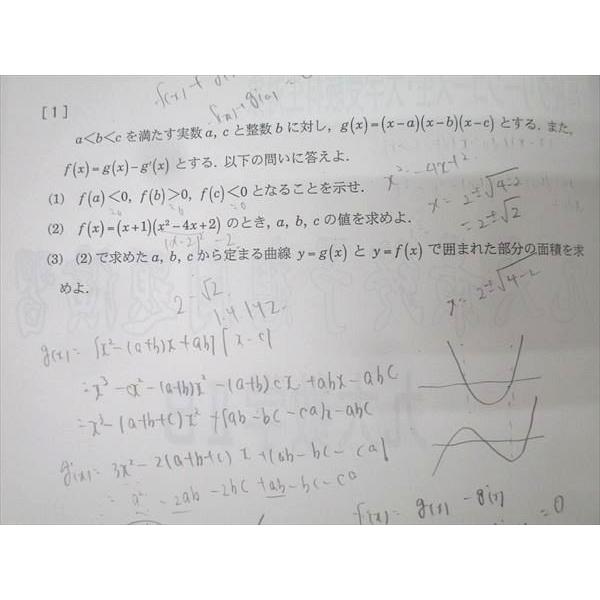 [1]
a<b<c を満たす実数 a, c と整数 b に対し, g(x)=(x-a)(x-b)(x-c) とする. また,
f(x)=g(x)-g'(x) とする. 以下の問いに答えよ.
(1) f(a)<0, f(b)>0, f(c)<0 となることを示せ.
(2) f(x)=(x+1)(x²-4x+2) のとき, a, b, c の値を求めよ.
(3) (2) で求めた a, b, c から定まる曲線 y=g(x) と y=f(x) で囲まれた部分の面積を求
めよ.
x²-4x+2
x=2±√4-2
=2±√2
(x-2)²-2
x=2±√4-2
2-√2
g(x)=[x²-(a+b)x+ab][x-c]
=x³-cx²-(a+b)x²-(a+b)cx+abx-abc
=x³-(a+b+c)x²+(ab-bc-ca)x-abc
g'(x)=3x²-2(a+b+c)x+(ab-bc-ca)
f(x)=g(x)-g'(x)
=0